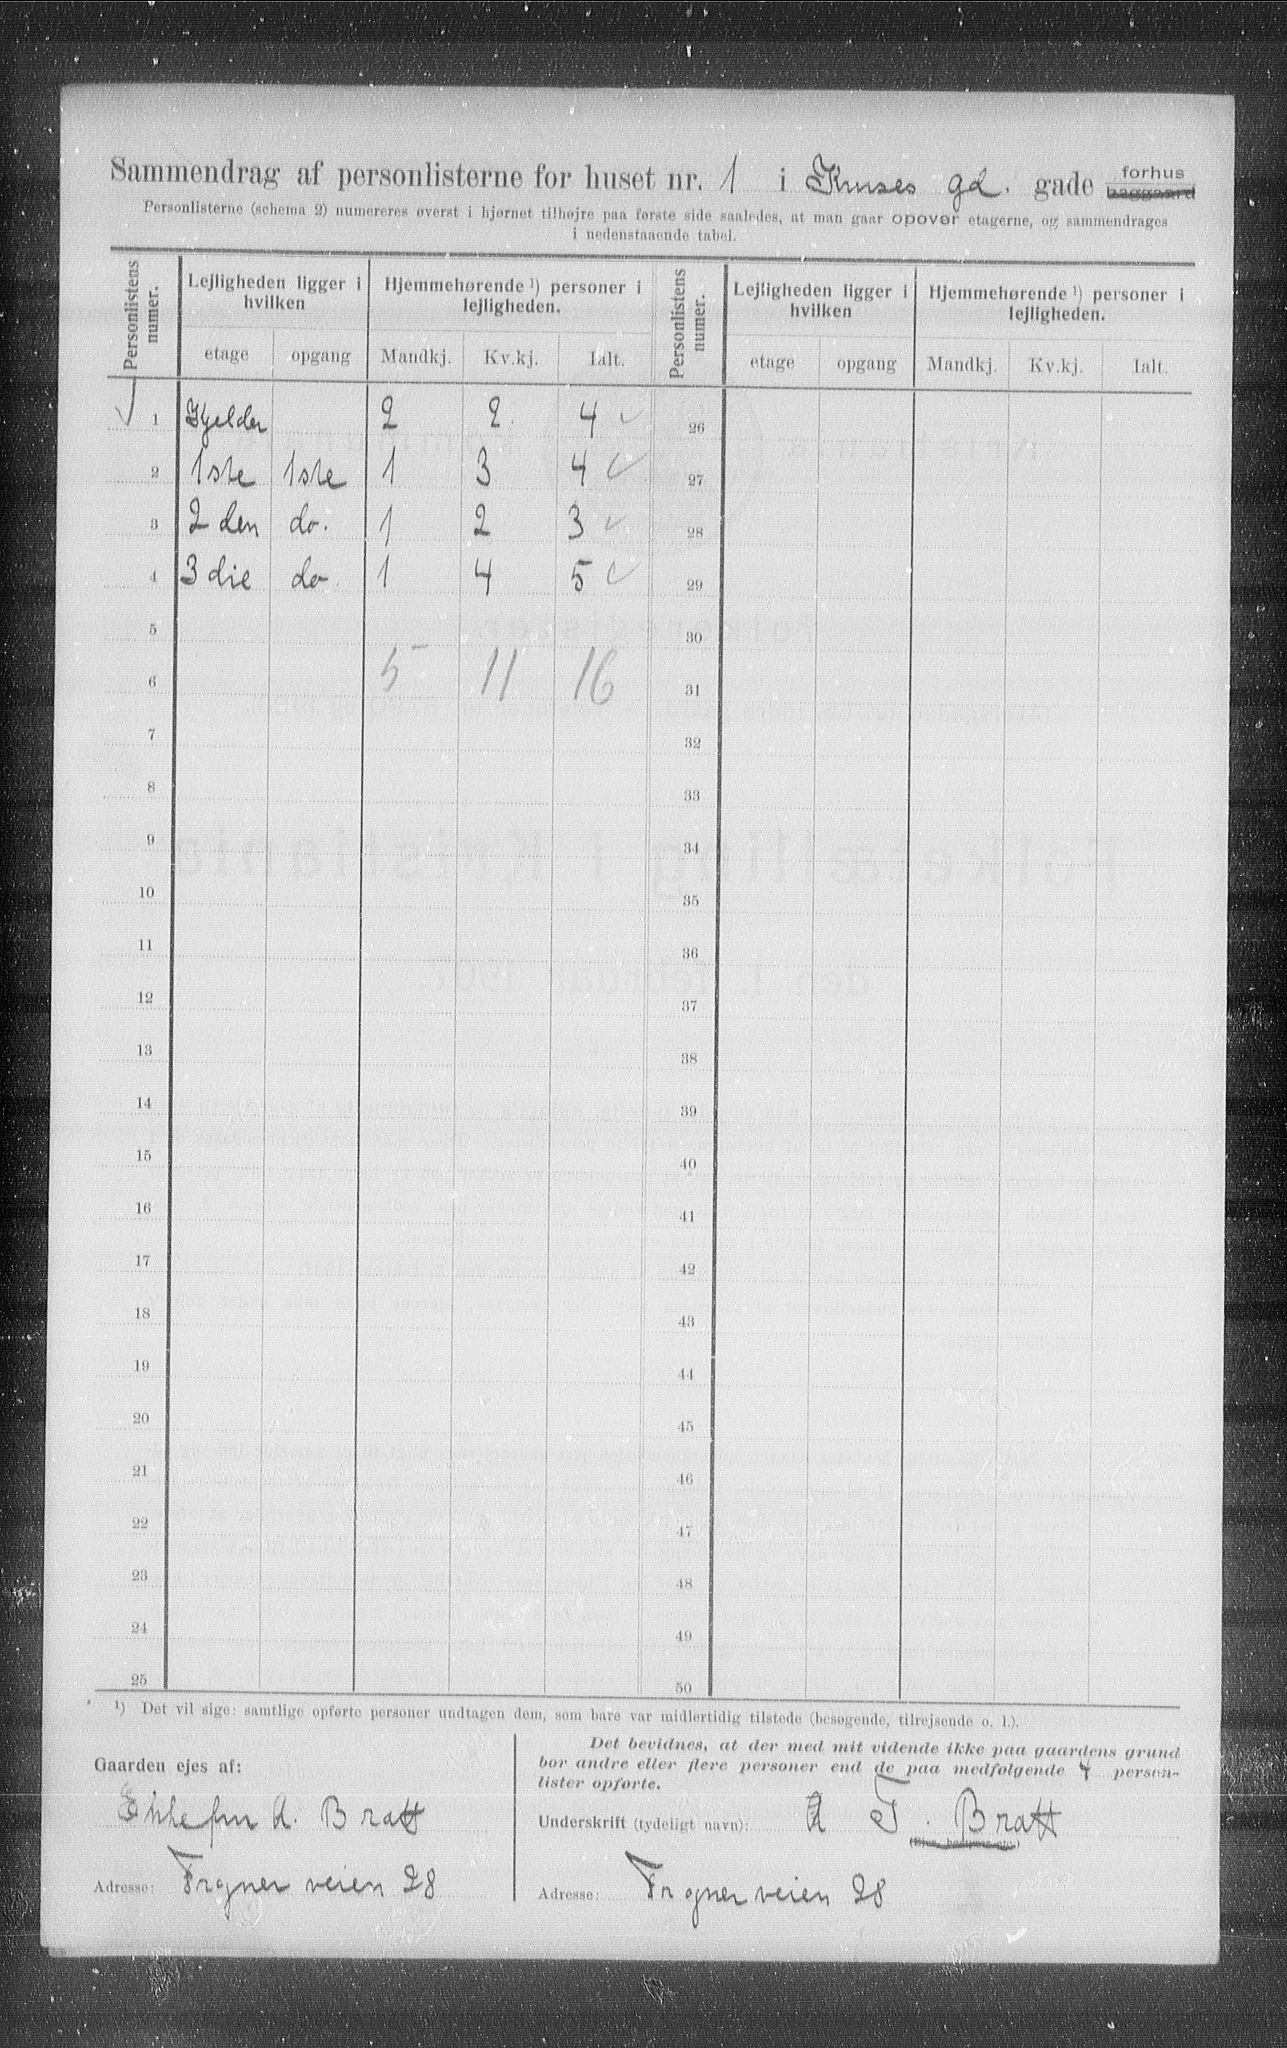 Sammendrag af personlisterne for huset nr. 1 i Kruses gd. gade forhus baggaard
Personlisterne (schema 2) numereres øverst i hjørnet tilhøjre paa første side saaledes, at man gaar opover etagerne, og sammendrages
i nedenstaaende tabel.
Personlistens numer. Lejligheden ligger i hvilken Hjemmehørende ¹) personer i lejligheden. Personlistens numer. Lejligheden ligger i hvilken Hjemmehørende ¹) personer i lejligheden.
etage opgang Mandkj. Kv.kj. Ialt. etage opgang Mandkj. Kv.kj. Ialt.
1 Kjelder 2 2 4 26
2 1ste 1ste 1 3 4 27
3 2den do. 1 2 3 28
4 3die do 1 4 5 29
5 30
6 5 11 16 31
7 32
8 33
9 34
10 35
11 36
12 37
13 38
14 39
15 40
16 41
17 42
18 43
19 44
20 45
21 46
22 47
23 48
24 49
25 50
¹) Det vil sige: samtlige opførte personer undtagen dem, som bare var midlertidig tilstede (besøgende, tilrejsende o. l.).
Gaarden ejes af:
Bratt
Adresse: Frognerveien 28
Det bevidnes, at der med mit vidende ikke paa gaardens grund
bor andre eller flere personer end de paa medfølgende 4 person-
lister opførte.
Underskrift (tydeligt navn): T. Bratt
Adresse: Frognerveien 28